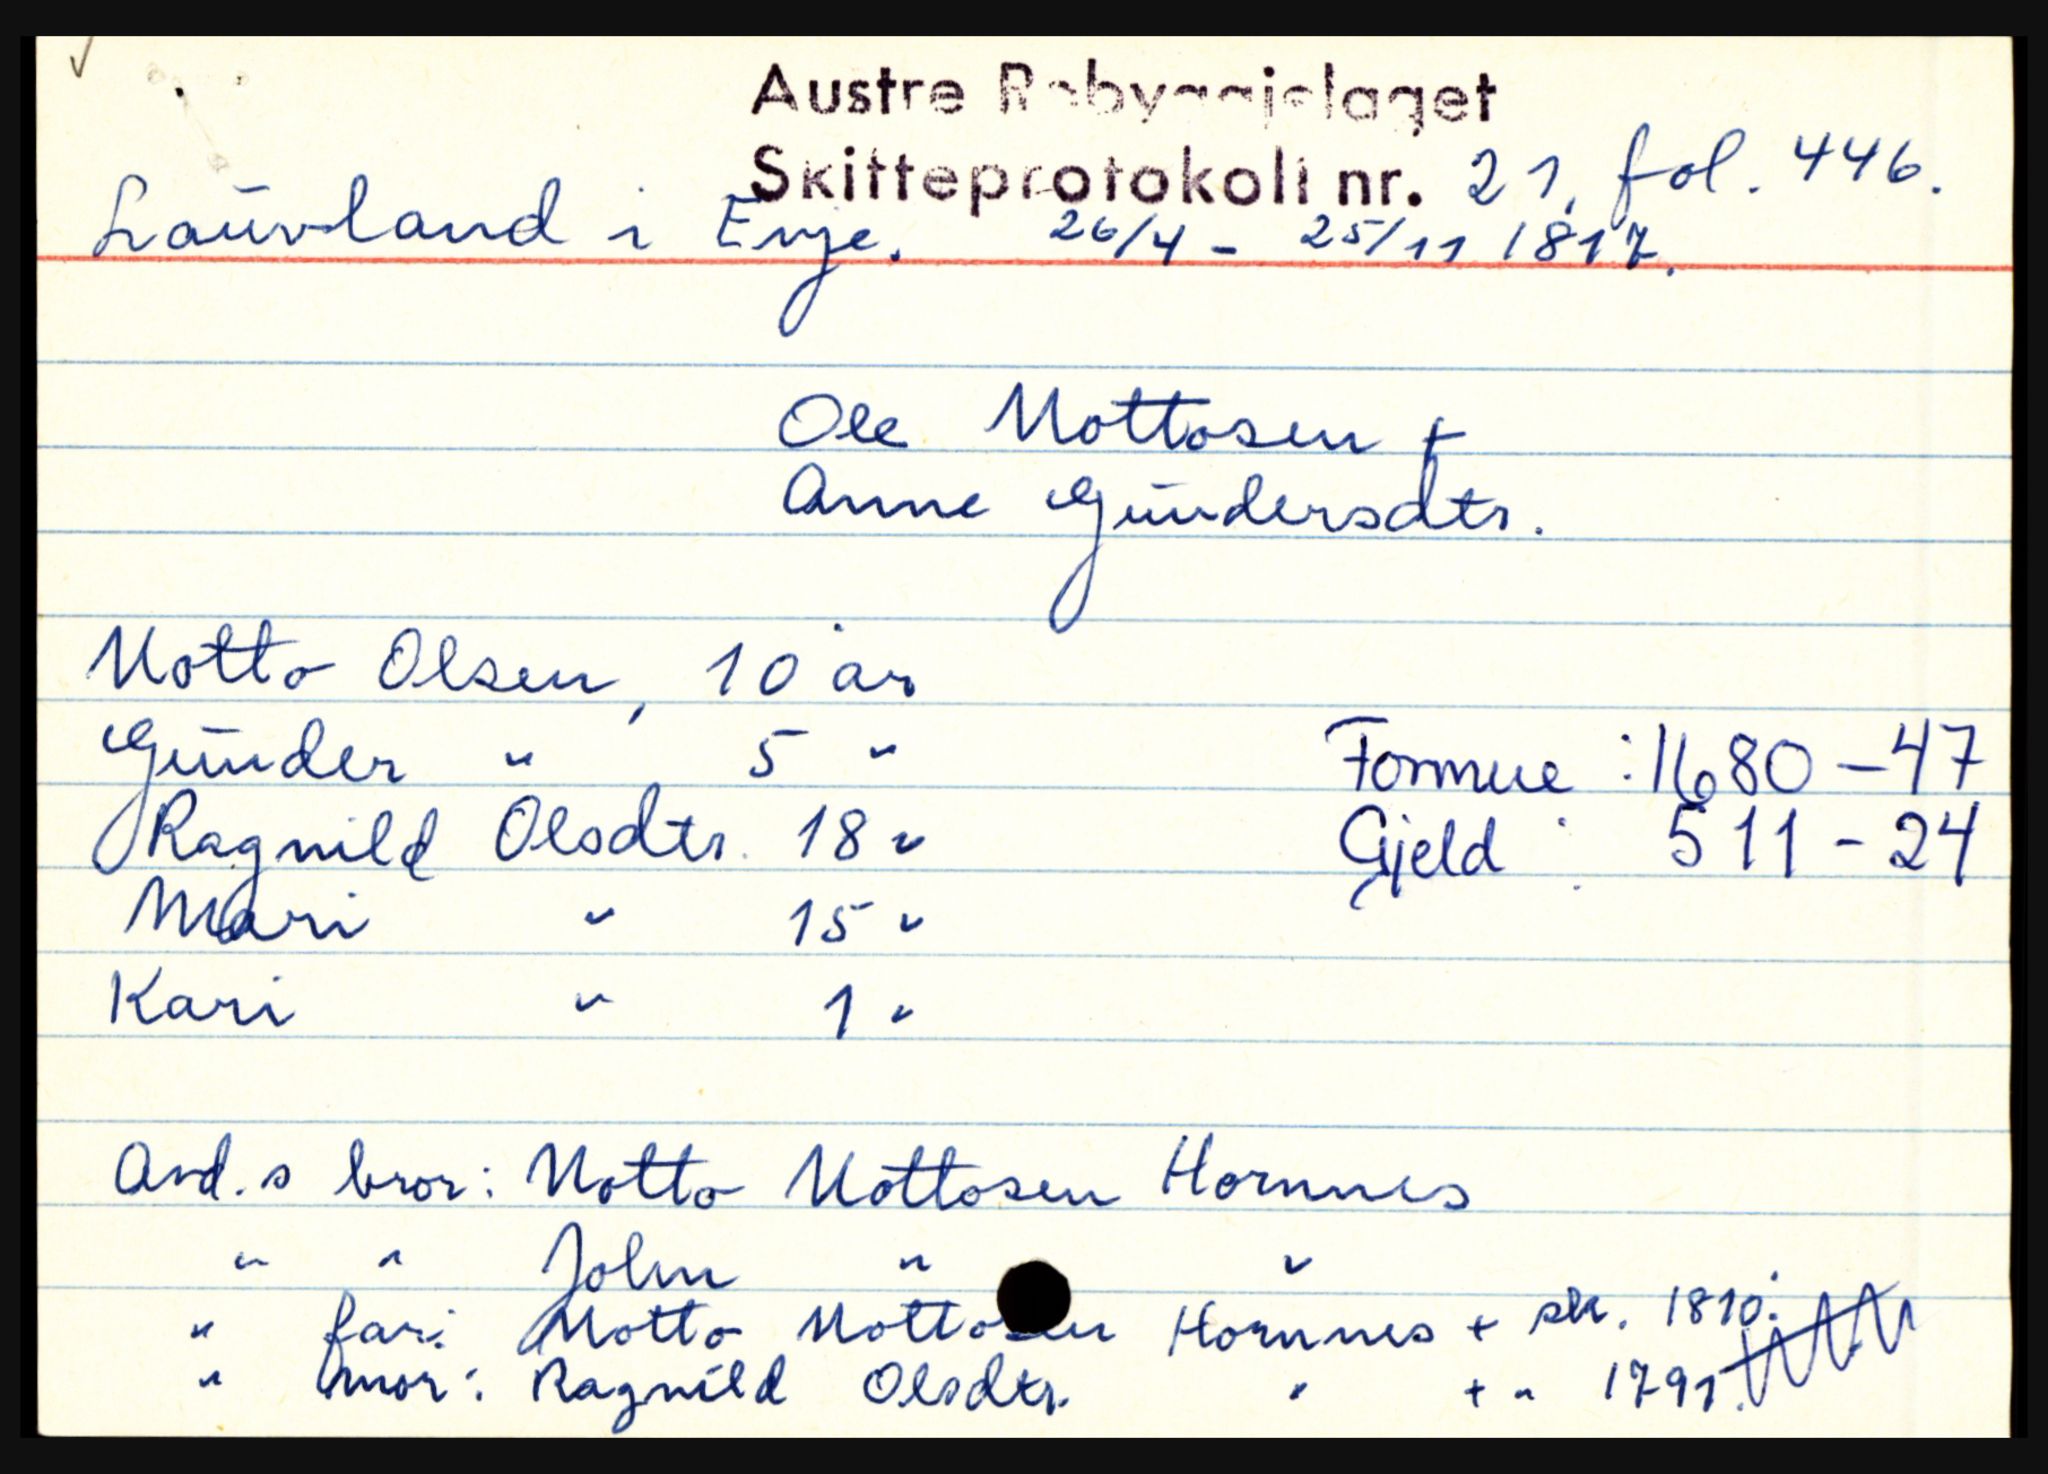 Austre Robyggjelaget
Skifteprotokoll nr. 21, fol. 446.
Lauvland i Evje. 26/4 - 25/11 1817.
Ole Nottosen +
Anne Gundersdtr.
Notto Olsen, 10 år
Gunder " 5 "
Ragnild Olsdtr. 18 "
Mari " 15 "
Kari " 1 "
Formue : 1680 - 47
Gjeld : 511 - 24
Avd. s bror: Notto Nottosen Hornnes
" " John " "
" far: Notto Nottosen Hornnes + sk. 1810.
" mor: Ragnild Olsdtr. " + " 1791.